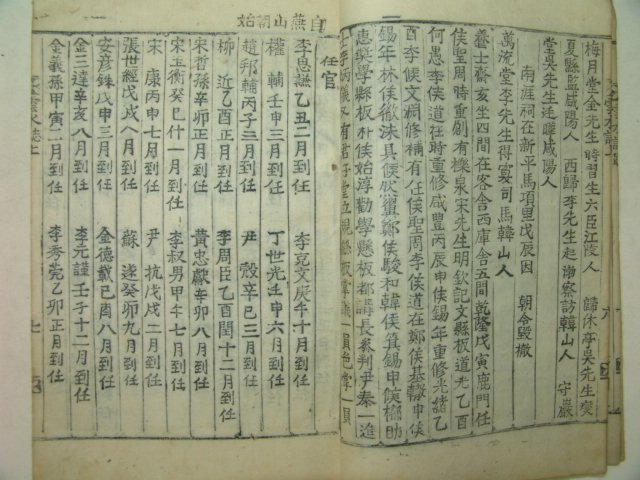 梅月堂金先生時習生六臣江陵人 歸休亭吳先生燮
夏縣監咸陽人 西歸李先生起浡察訪韓山人 守巖
堂吳先生廷曄咸陽人
南涯祠在新平馬項里戊辰因 朝令毀撤
萬流堂李先生得宴司馬韓山人
養士齋亥坐四間在客舍西庫舍五間乾隆戊寅鹿門任
侯聖周時重剏有櫟泉宋先生明欽記文縣板道光乙酉
何愚李侯道在時重修咸豊丙辰申侯錫年重修光緒乙
酉李侯文淵修補有任侯聖周李侯道在鄭侯基 申侯
錫年林侯徹洙具侯 鄭侯駿和韓侯箕錫申侯 助
惠 學縣板朴侯始淳勸學懸板都講長參判尹泰一造
士李炳儀又有君子堂立 懸板
自燕山朝始
任官
李思謙乙丑二月到任 李克文庚午十月到任
權輔壬申三月到任 丁世光壬申六月到任
趙邦輔丙子三月到任 尹殼辛巳三月到任
柳近乙酉正月到任 李周臣乙酉閏十二月到任
宋哲孫辛卯正月到任 黃忠獻辛卯八月到任
宋玉衡癸巳什一月到任 李叔男甲午七月到任
宋康丙申七月到任 尹抗戊戌二月到任
張世經戊戌八月到任 蘇遂癸卯九月到任
安彦銖戊申三月到任 金德載己酉八月到任
金三達辛亥八月到任 李元謹壬子十二月到任
金義孫甲寅二月到任 李秀莞乙卯正月到任
七